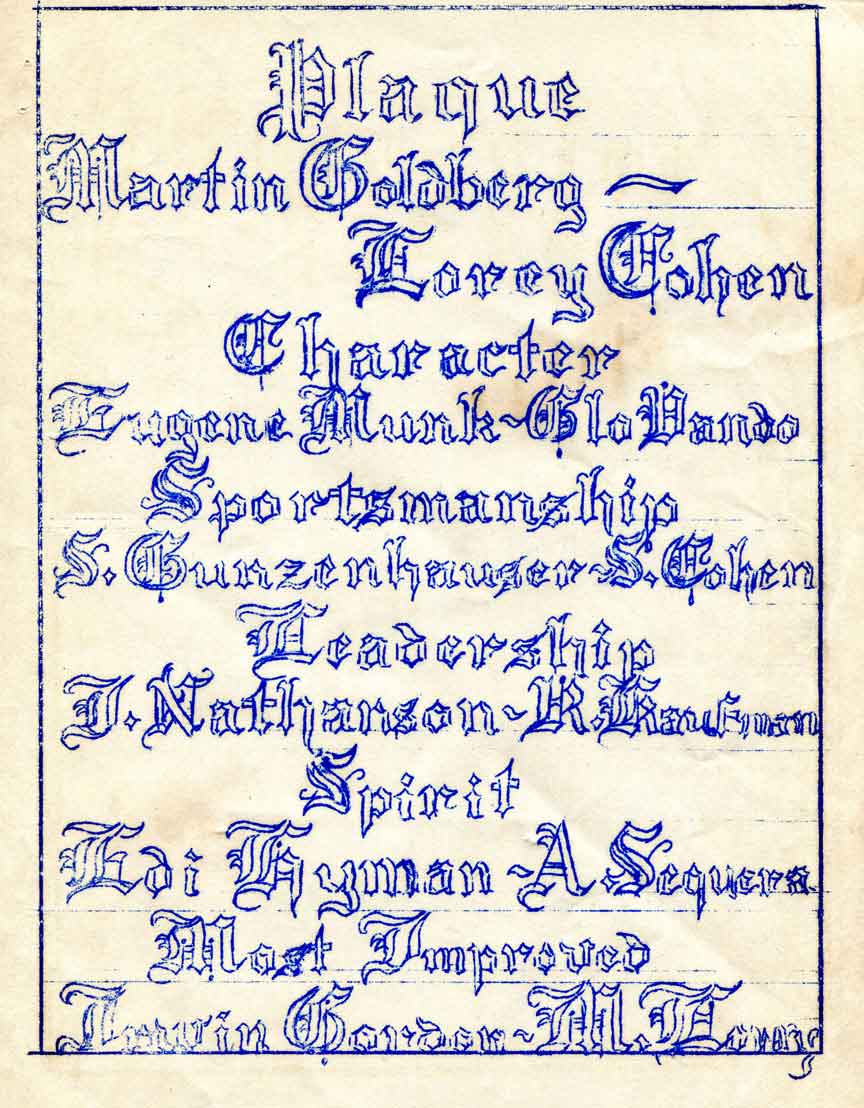 Plaque
Martin Goldberg —
Lorey Cohen
Character
Eugene Munk-Glo Vando
Sportsmanship
S. Gunzenhauser-S. Cohen
Leadership
I. Nathanson-R. Kaufman
Spirit
Edi Hyman-A. Sequera
Most Improved
Irwin Gordon-M.